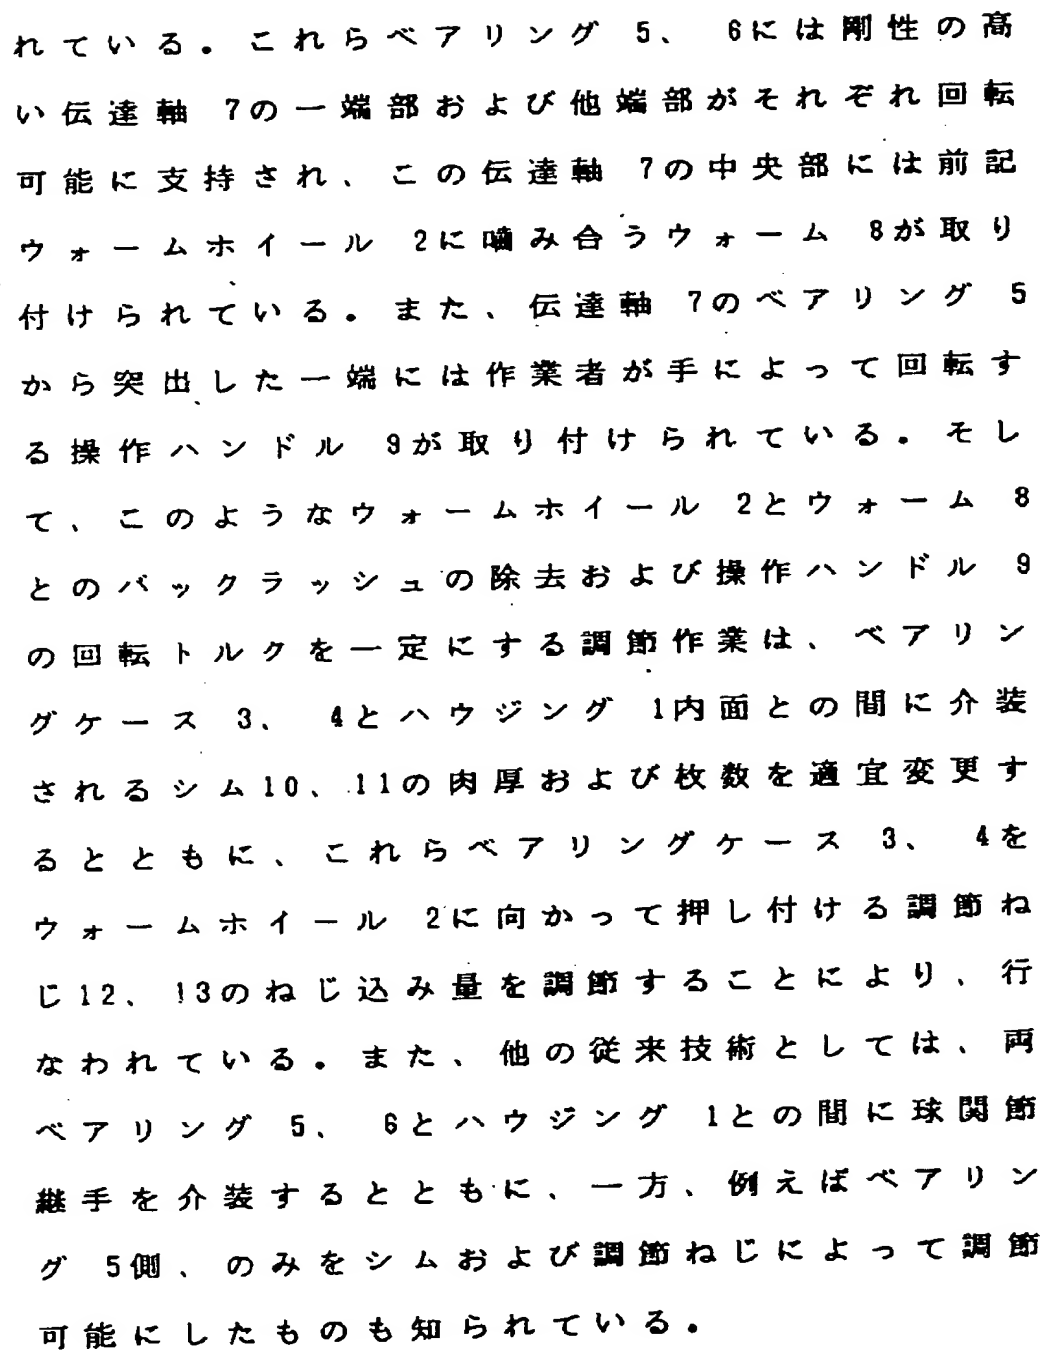 れている。これらベアリング 5、 6には剛性の高
い伝達軸 7の一端部および他端部がそれぞれ回転
可能に支持され、この伝達軸 7の中央部には前記
ウォームホイール 2に噛み合うウォーム 8が取り
付けられている。また、伝達軸 7のベアリング 5
から突出した一端には作業者が手によって回転す
る操作ハンドル 9が取り付けられている。そし
て、このようなウォームホイール 2とウォーム 8
とのバックラッシュの除去および操作ハンドル 9
の回転トルクを一定にする調節作業は、ベアリン
グケース 3、 4とハウジング 1内面との間に介装
されるシム10、11の肉厚および枚数を適宜変更す
るとともに、これらベアリングケース 3、 4を
ウォームホイール 2に向かって押し付ける調節ね
じ12、13のねじ込み量を調節することにより、行
なわれている。また、他の従来技術としては、両
ベアリング 5、 6とハウジング 1との間に球関節
継手を介装するとともに、一方、例えばベアリン
グ 5側、のみをシムおよび調節ねじによって調節
可能にしたものも知られている。